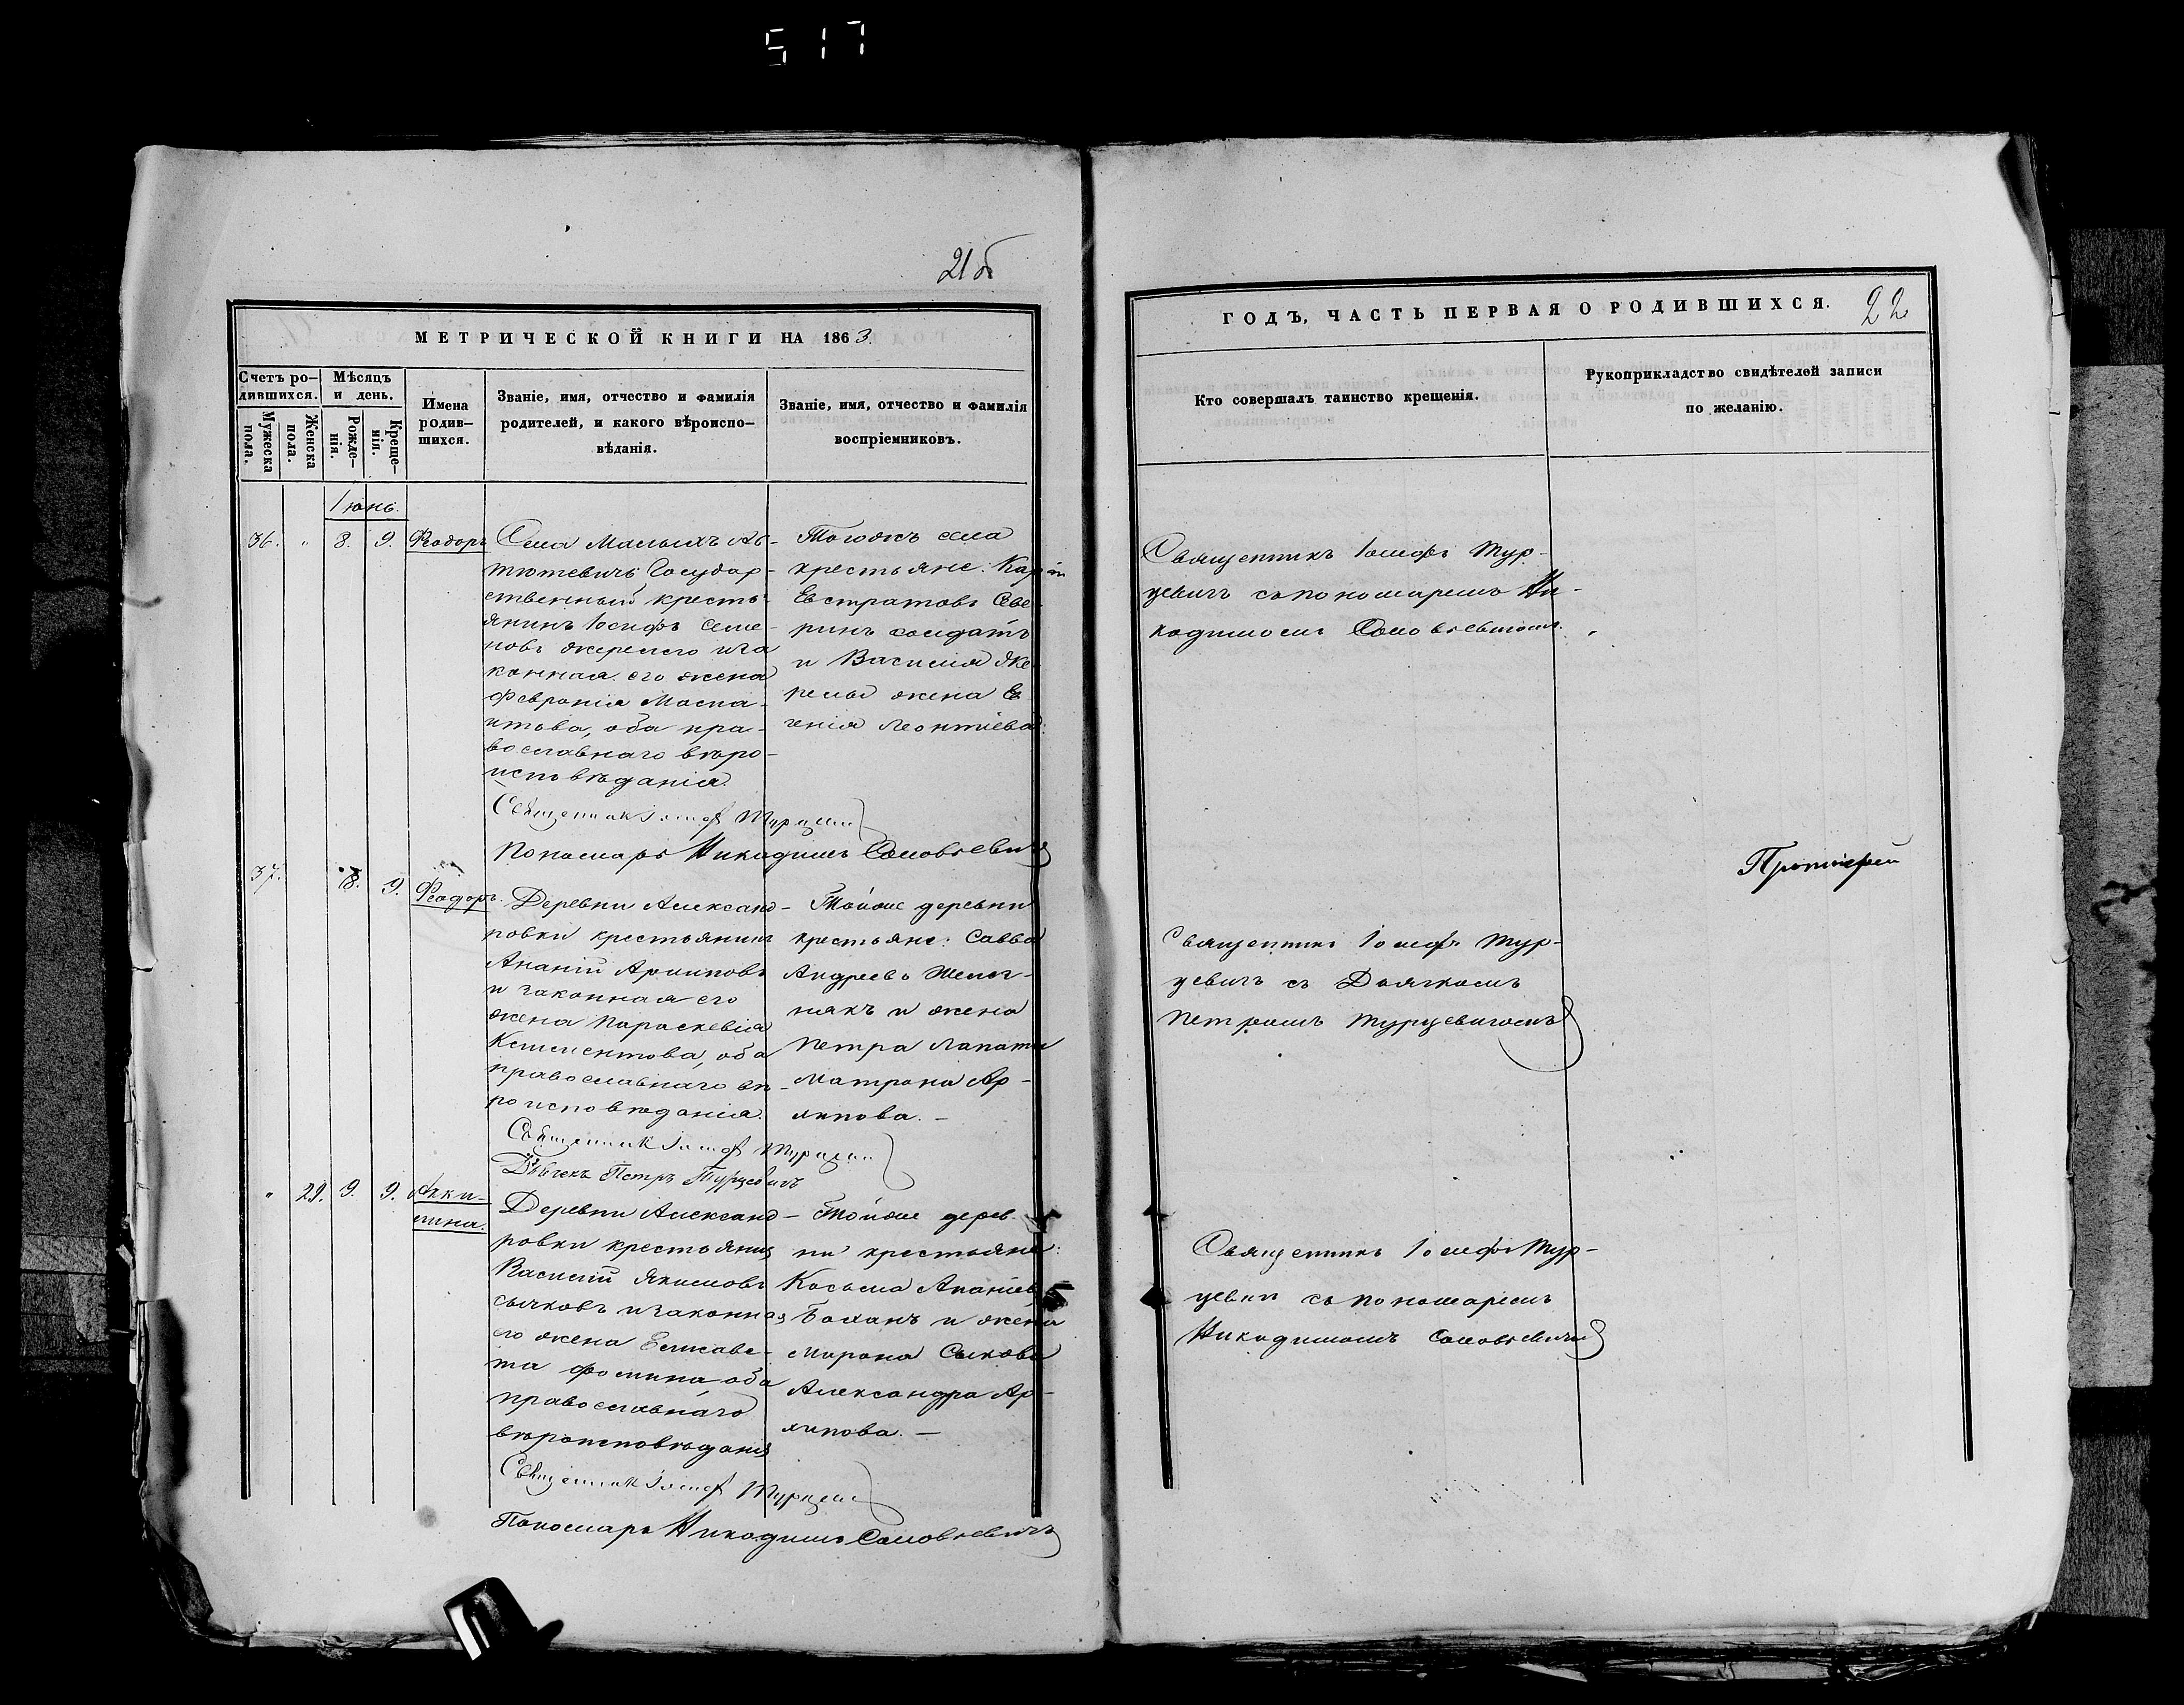 517
21б
МЕТРИЧЕСКОЙ КНИГИ НА 1863.
Счетъ ро-
дившихся.
Мужеска
пола.
Женска
пола.
Мѣсяцъ
и день.
Рожде-
нія.
Креще-
нія.
Имена
родив-
шихся.
Званіе, имя, отчество и фамилія
родителей, и какого вѣроиспо-
вѣданія.
Званіе, имя, отчество и фамилія
воспріемниковъ.
Іюнь.
36. " 8. 9. Ѳеодоръ
Села Малыхъ Ав-
тютевичь Государ-
ственный кресть-
янинъ Іосифъ Семе-
новъ и за
конная его жена
Февронія
оба пра-
вославнаго вѣро-
исповѣданія.
Тогожъ села
крестьяне:
Евстратовъ
солдатъ
и Василія
жена Ев
генія Леонтіева.
Священник Іосиф Турцевич
Пономарь Никодимъ Соловьевичъ
37. 8. 9. Ѳеодоръ.
Деревни Александ-
ровки крестьянинъ
Ананій Архиповъ
и законная его
жена Параскевія
Климентова, оба
православнаго вѣ-
роисповѣданія.
Тойже деревни
крестьяне: Савва
Андреевъ
и жена
Петра
Матрона Ар-
хипова. —
Священник Іосиф Турцевич
Дьячекъ Петръ Турцевичъ
" 29. 9. 9. Акки-
лина.
Деревни Александ-
ровки крестьянинъ
Василій Якимовъ
Сычковъ и законная
его жена Елисаве-
та Фомина, оба
православнаго
вѣроисповѣданія
Тойже дерев
ни крестьяне:
Косьма Ананіевъ
и жена
Мирона
Александра Ар-
хипова. —
Священник Іосиф Турцевич
Пономарь Никодимъ Соловьевичъ
ГОДЪ, ЧАСТЬ ПЕРВАЯ О РОДИВШИХСЯ.
22
Кто совершалъ таинство крещенія.
Рукоприкладство свидѣтелей записи
по желанію.
Священникъ Іосифъ Тур-
цевичъ съ пономаремъ Ни-
кодимомъ Соловьевичомъ.
Протоіерей
Священникъ Іосифъ Тур-
цевичъ съ Дьячкомъ
Петромъ Турцевичомъ
Священникъ Іосифъ Тур-
цевичъ съ пономаремъ
Никодимомъ Соловьевичомъ